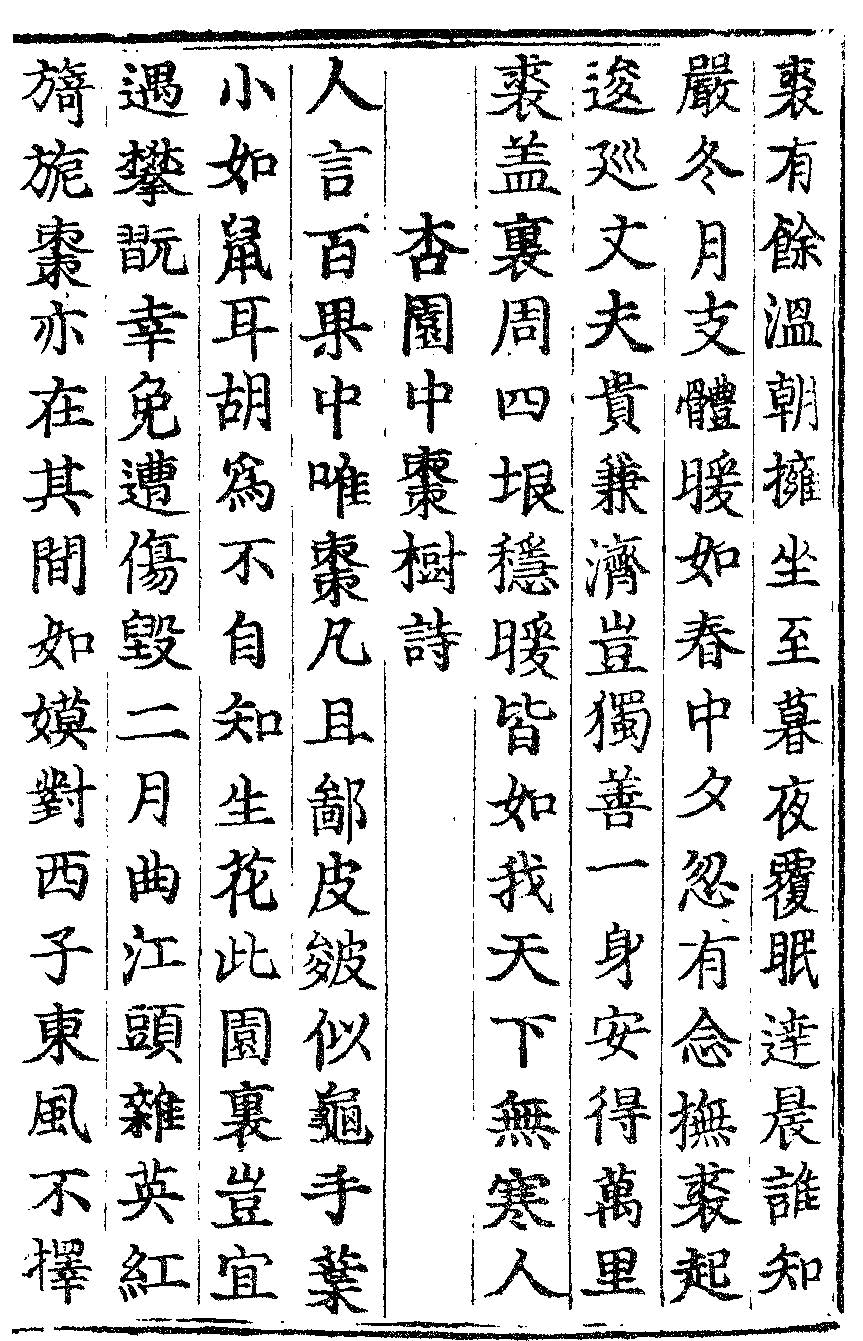 裘有餘溫朝擁坐至暮夜覆眠達晨誰知
嚴冬月支體暖如春中夕忽有念撫裘起
逡廵丈夫貴兼濟豈獨善一身安得萬里
裘盖裏周四垠穩暖皆如我天下無寒人
杏園中棗樹詩
人言百果中唯棗凡且鄙皮皴似龜手葉
小如鼠耳胡爲不自知生花此園裏豈宜
遇攀翫幸免遭傷毀二月曲江頭雜英紅
旖旎棗亦在其間如嫫對西子東風不擇